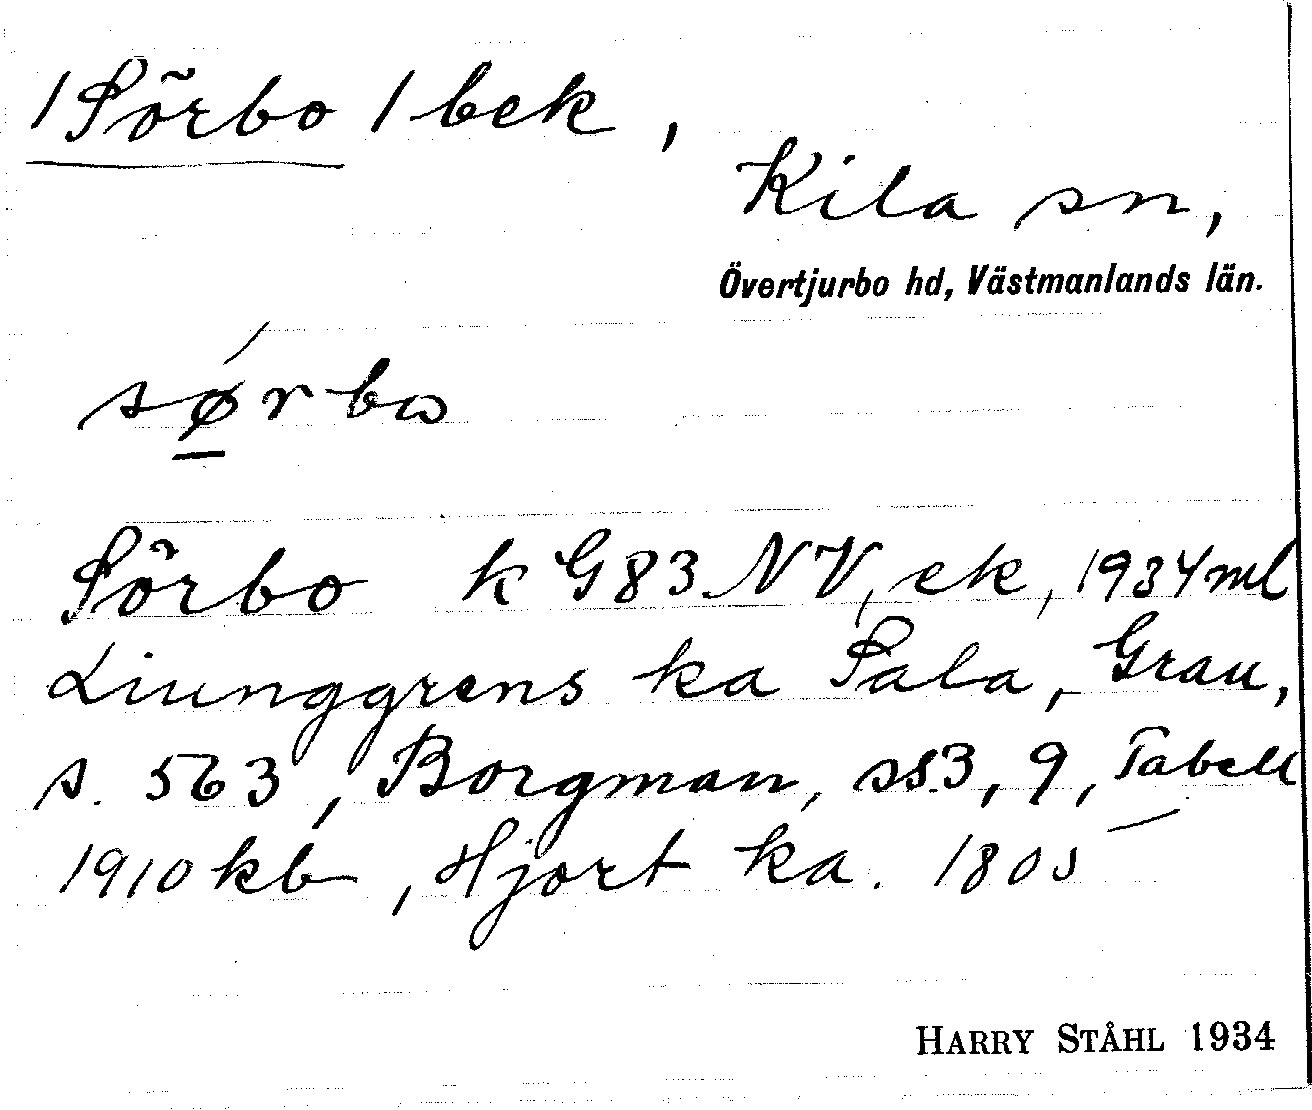 / Sörbo / bek,
Kila sn,
Övertjurbo hd, Västmanlands län.
sørbω
Sörbo k G83 NV, ek, 1934 ml
Liunggrens ka Sala, Grau,
s. 563, Borgman, ss 3, 9, Tabell
1910 kb, Hjort ka. 1805
HARRY STÅHL 1934